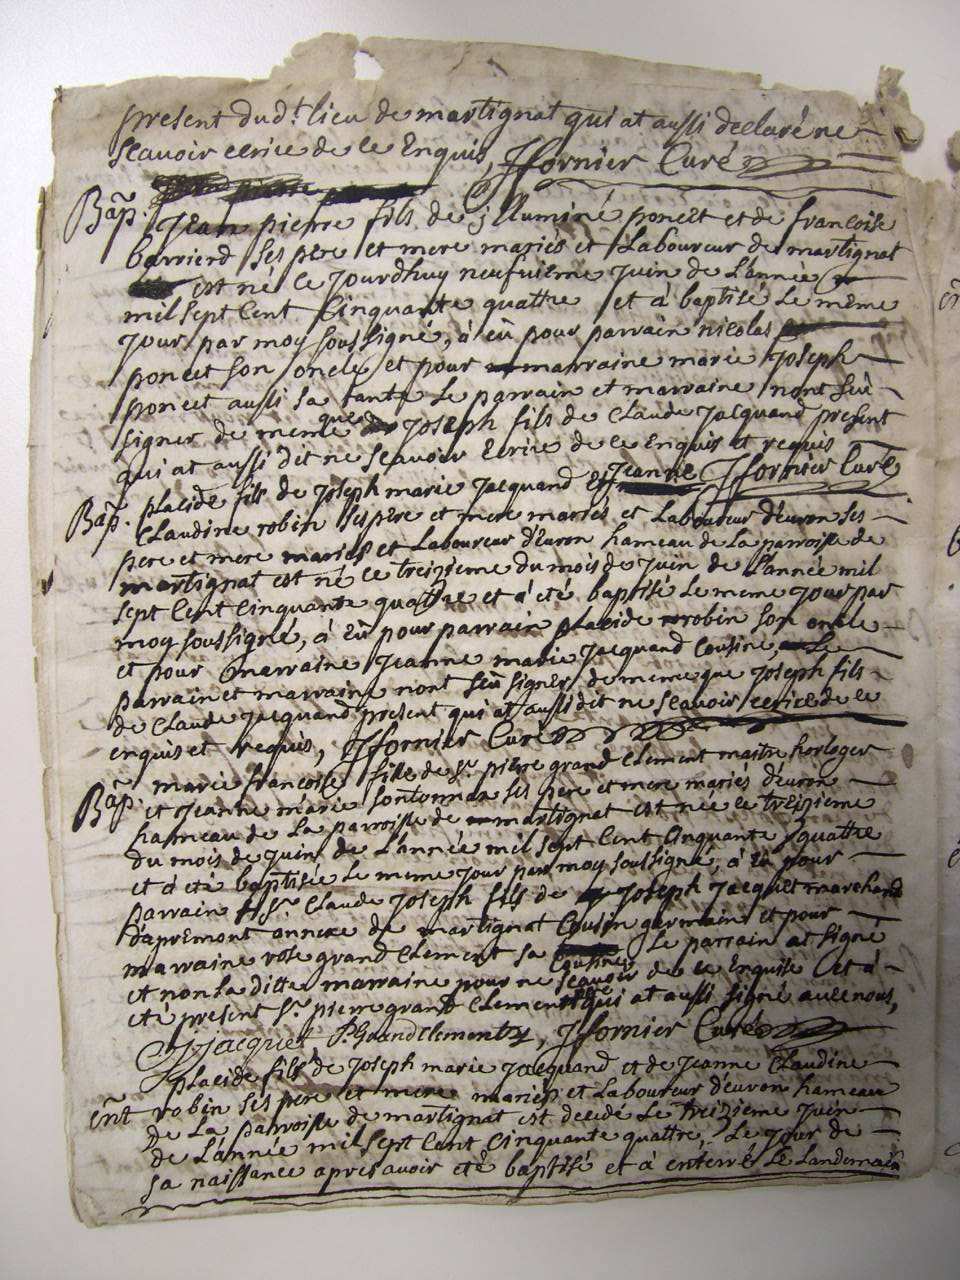 present dud.t lieu de martignat qui at aussi declaré ne
scavoir ecrice de ce Enquis, Jfornier Curé
Bap. Jean pierre fils de illuminé poncet et de francoise
barrierd ses pere et mere mariés et Laboureur de martignat
est né ce jourdhuy neufvieme juin de L'année
mil sept cent cinquante quattre et à baptisé Le même
jour par moy soussigné, à eû pour parrain nicolas
poncet son oncle et pour marraine marie joseph
poncet aussi sa tante Le parrain et marraine nont sçû
signer de meme que joseph fils de Claude jacquand present
qui at aussi dit ne scavoir Ecrice de ce enquis et requis
Bap. placide fils de joseph marie jacquand Et jeanne Jfornier Curé
Claudine robin ses pere et mere mariés et Laboureur d'évron ses
pere et mere mariés et Laboureur d'Evron hameau de La parroisse de
martignat est né ce treizieme du mois de juin de L'année mil
sept Cent Cinquante quattre et à été baptisé Le meme jour par
moy soussigné, à Eû pour parrain placide robin son oncle
et pour marraine jeanne marie jacquand Cousine, Le
parrain et marraine nont sçû signer de meme que joseph fils
de Claude jacquand present qui at aussi dit ne scavoir ecrice de ce
enquis et requis, Jfornier Curé
Bap. marie francoise fille de s.r pierre grand Clement maitre horloger
et jeanne marie sontonnax ses pere et mere mariés d'évron
hameau de La parroisse de martignat est née ce treizieme
du mois de juin de L'année mil sept Cent Cinquante quattre
et à eté baptisée Le meme jour par moy soussigné, à Eû pour
parrain s.r Claude joseph fils de joseph jacquet marchand
d'apremont annexe de martignat Cousin germain et pour
marraine rose grand Clement sa Cousine, Le parrain at signé
et non La ditte marraine pour ne scavoir de ce Enquise et à
eté present s.r pierre grand Clement qui at aussi signé avec nous,
Cjjacquet, P. Grandclement, Jfornier Curé
placide fils de joseph marie jacquand et de jeanne Claudine
ent robin ses pere et mere mariés et Laboureur d'évron hameau
de La parroisse de martignat est decedé Le treizieme juin
de L'année mil sept Cent Cinquante quattre, Le jour de
sa naissance apres avoir eté baptisé et à enterré Le Landemain